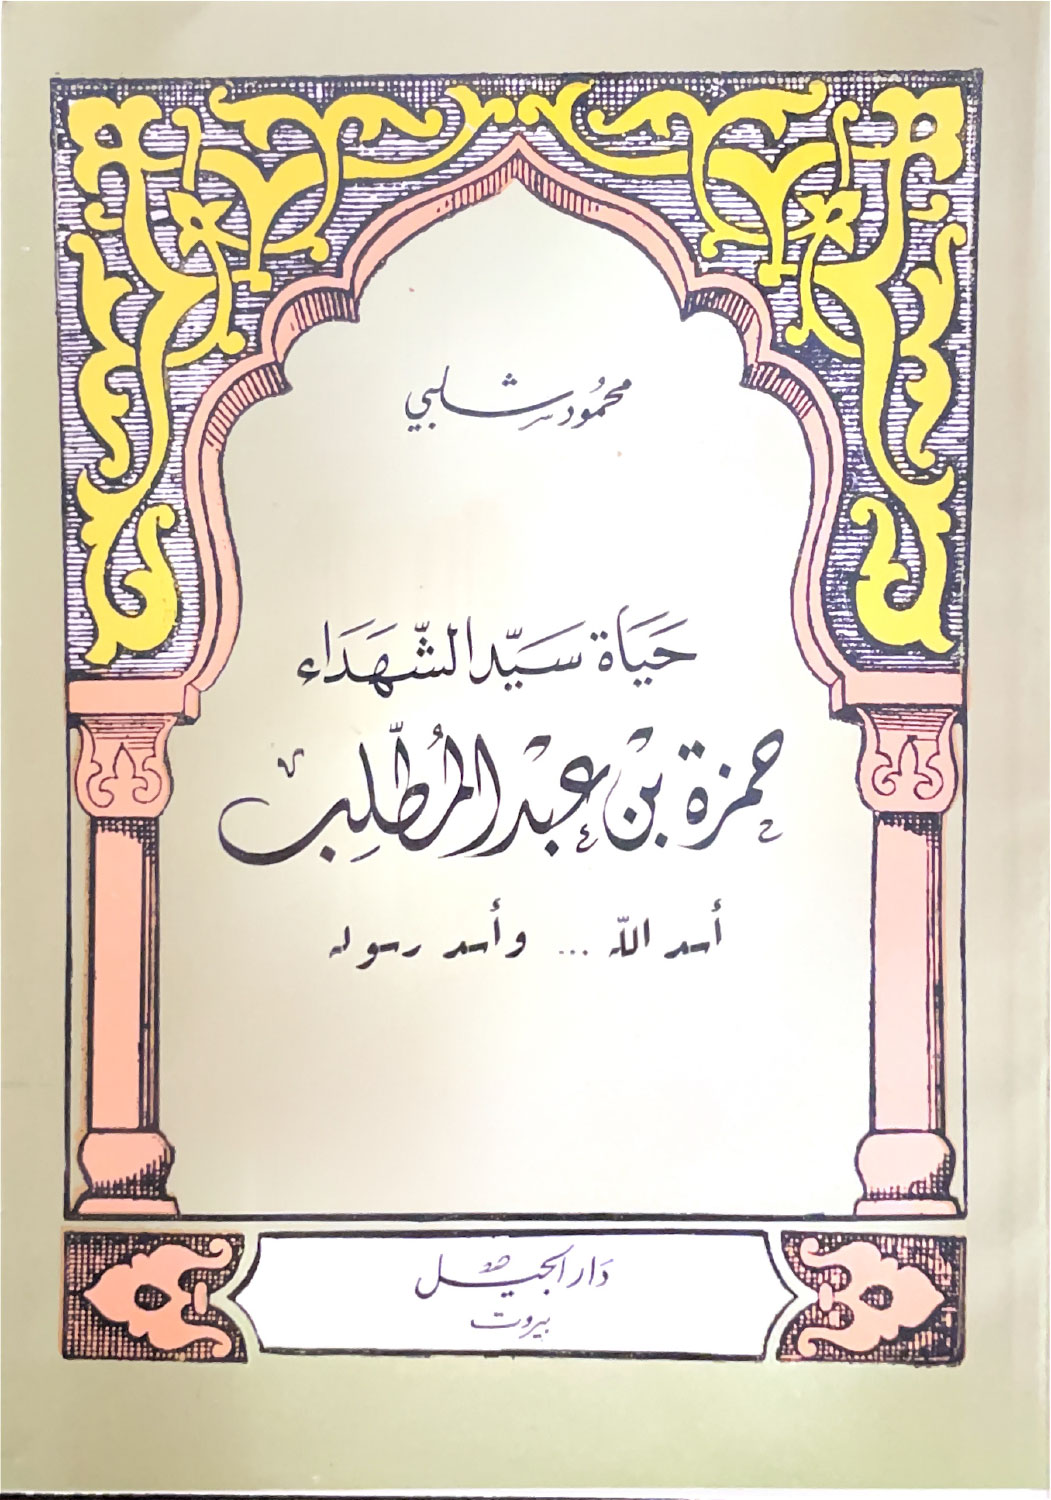 محمود شلبي
حَيَاة سَيّد الشّهَدَاء
حمزة بن عبد المُطّلِب
أسد الله ... وأسد رسوله
دَار الجيل
بيروت